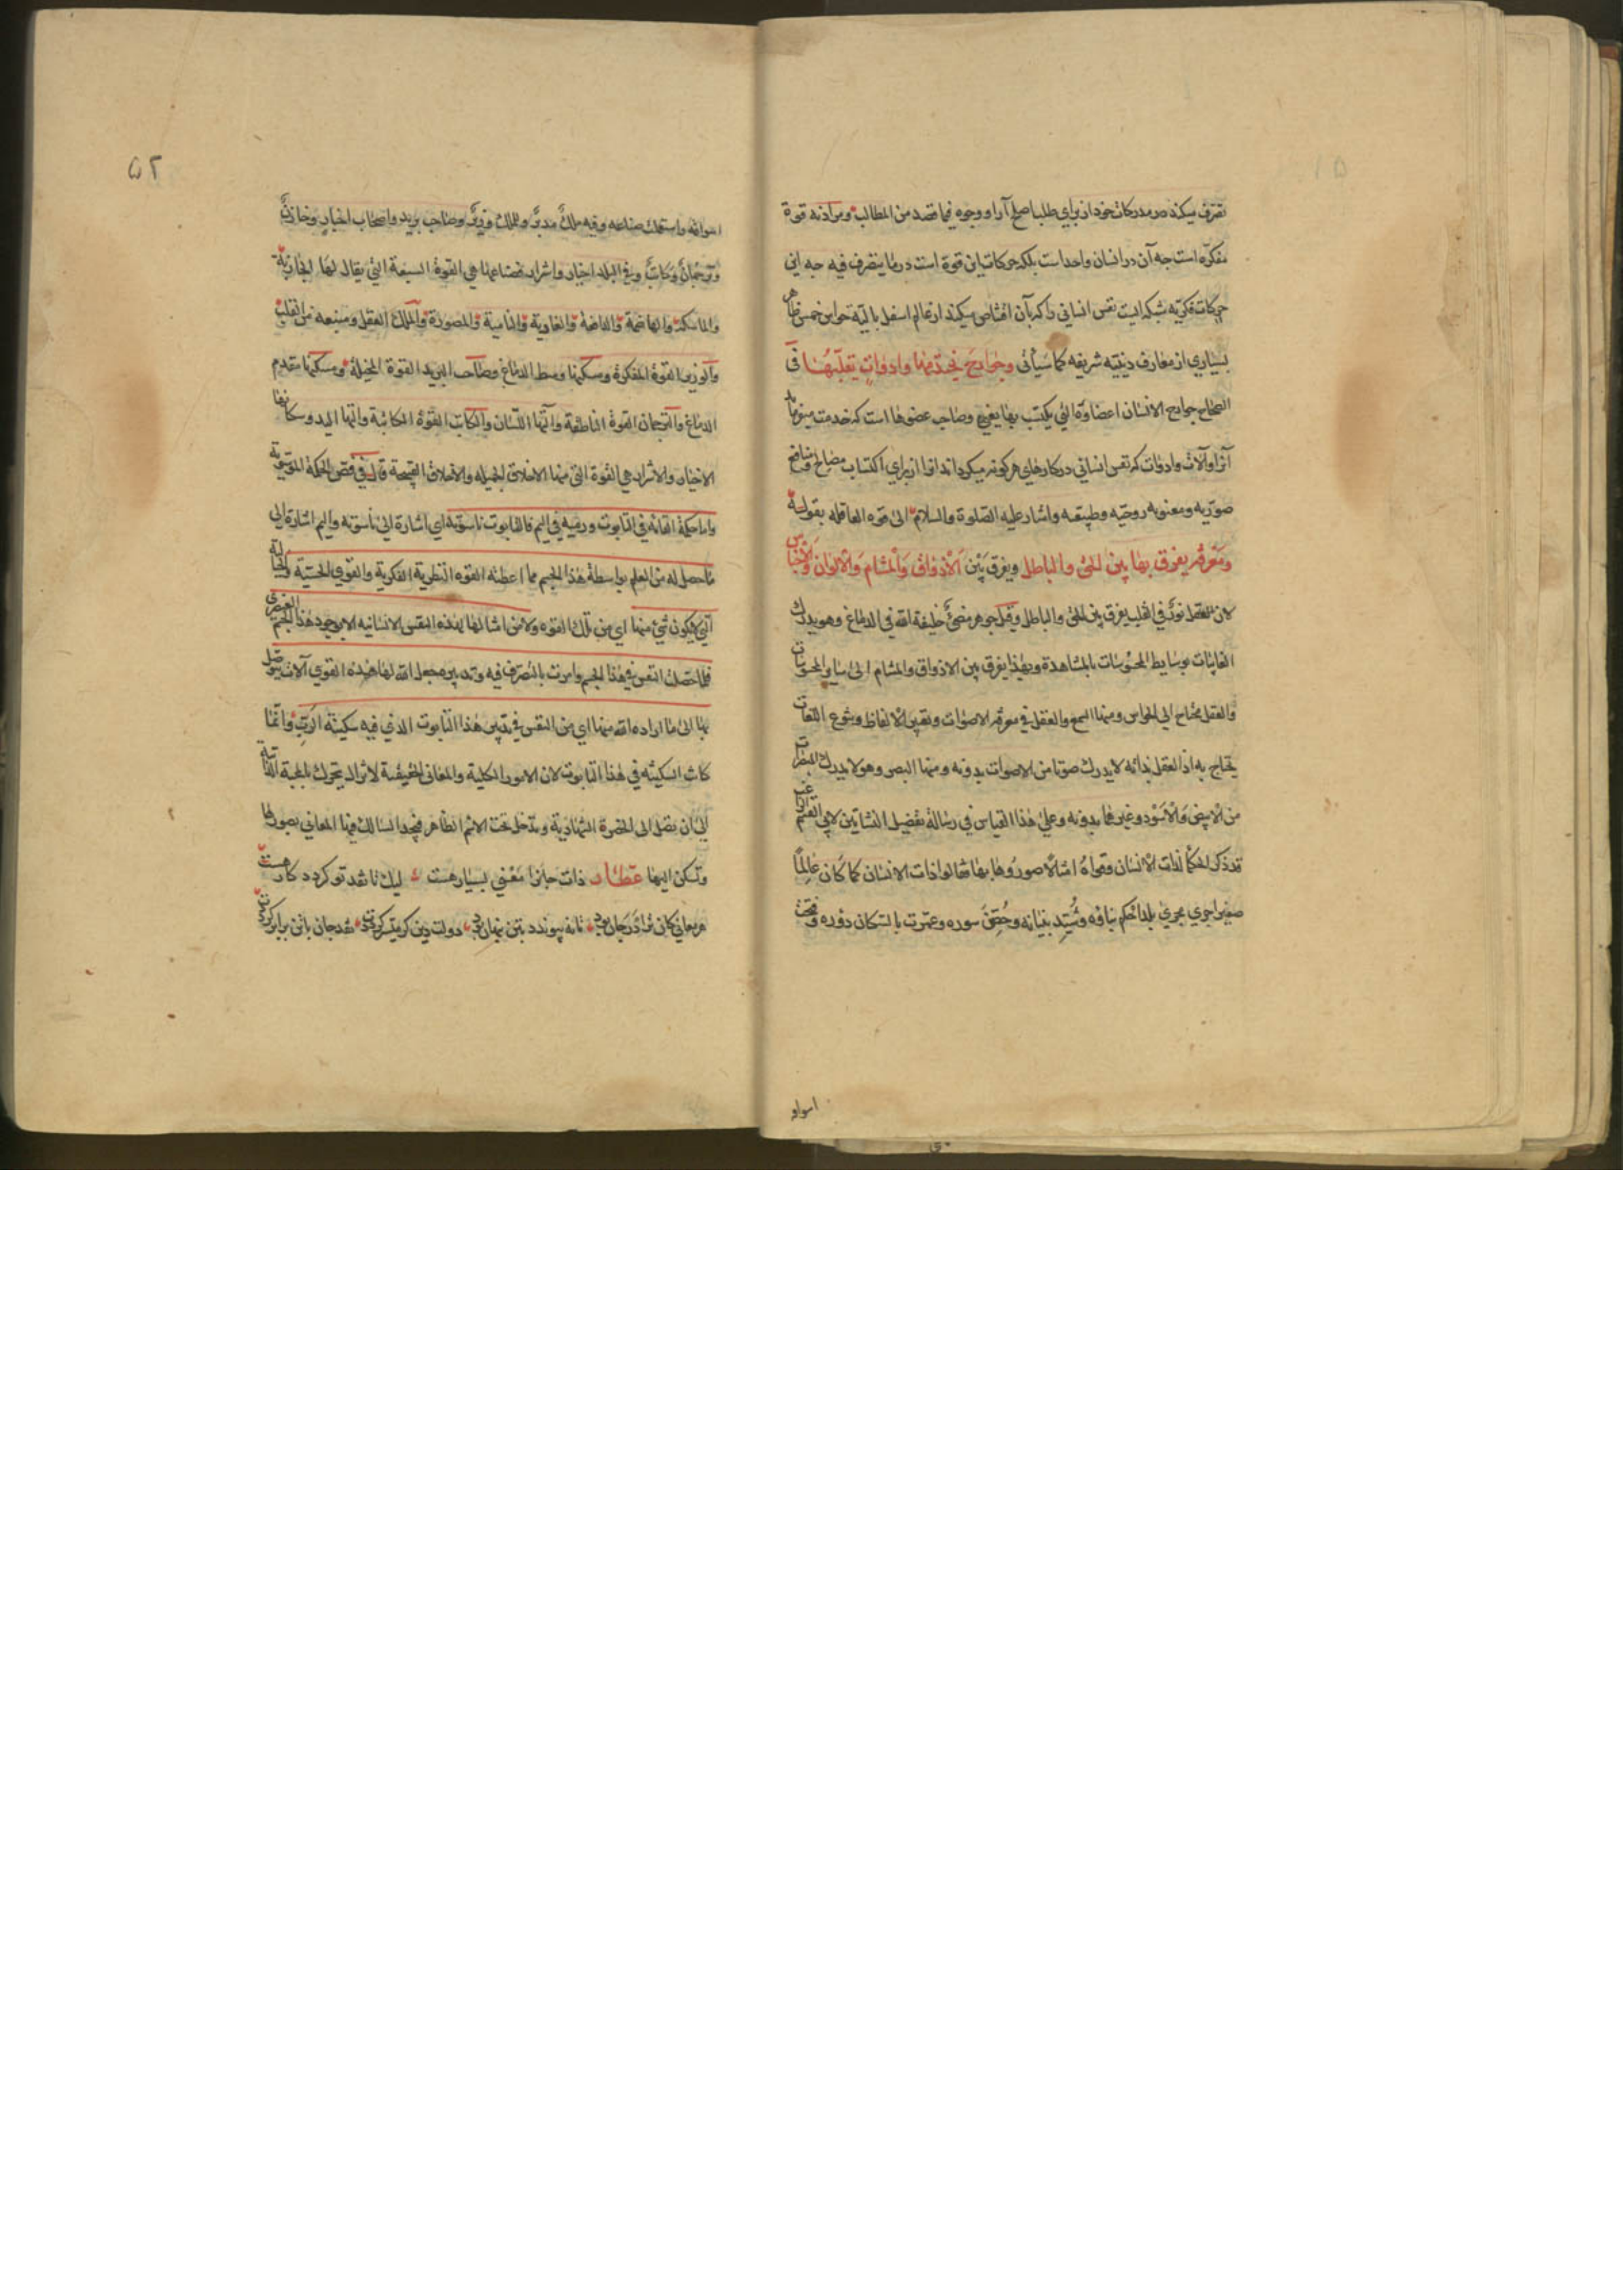 تصرف میکند در مدرکات خود از برای طلب اصلح آرا و وجوه فیما قصد من المطالب و مراد نه قوة
مفکره است چه آن در انسان واحد است بلکه حرکات این قوة است در ما یتصرف فیه چه این
حرکات فکریه شبکه ایست نفس انسانی را که بآن اقتناص میکند از عالم اسفل بالیه حواس خمس ظاهر
بسیاری از معارف دینیه شریفه کما سیأتی وجوارح یختدمها وادوات یقلبها فی
الصحاح جوارح الانسان اعضاؤه التی یکتسب بها یعنی وصاحب عضوها است که خدمت میفرماید
آنرا و آلات وادوات که نفس انسانی در کارهای هر کونه میکرداند آنرا از برای اکتساب مصالح ومنافع
صوریه ومعنویه روحیه وطبیعیه واشار علیه الصلوة والسلام الی قوه العاقله بقوله
ومعرفة یفرق بها بین الحق والباطل ویفرق بین الاذواق والمشام والالوان والاجناس
لان العقل نور فی القلب یفرق بین الحق والباطل وقیل جوهر مضئ خلیفة الله فی الدماغ وهو یدرک
الغایبات بوسایط المحسوسات بالمشاهدة وبهذا یفرق بین الاذواق والمشام الی سایر المحسوسات
والعقل محتاج الی الحواس ومنها السمع والعقل فی معرفة الاصوات وتغیر الالفاظ وتنوع اللغات
یحتاج به اذ العقل بذاته لا یدرک صوتا من الاصوات بدونه ومنها البصر وهو لا یدرک المبصرات
من الابیض والاسود وغیرهما بدونه وعلی هذا القیاس فی رسالة تفضیل النشاتین لابی القسم الراغب
قد ذکر الحکما لذات الانسان وقواه امثالا صوروها بها فقالوا ذات الانسان لما کان عالما
صغیرا جری مجری بلد احکم بناؤه وشید بنیانه وحصن سوره وعمرت بالسکان دوره وفتحت
اسواق
۵۲
اسواقه واستعملت صناعه وفیه ملک مدبر وللملک وزیر وصاحب برید واصحاب اخبار وخازن
وترجمان وکاتب وفی البلد اخیار واشرار فصناعها هی القوة السبعة التی یقال لها الجاذبة
والماسکة والهاضمة والدافعة والغاذیة والنامیة والمصورة والملک العقل ومنبعه من القلب
والوزیر القوة المفکرة ومسکنها وسط الدماغ وصاحب البرید القوة المخیلة ومسکنها مقدم
الدماغ والترجمان القوة الناطقة وآلتها اللسان والکاتب القوة الکاتبة وآلتها الید وسکانها
الاخیار والاشرار هی القوة التی منها الاخلاق الجمیله والاخلاق القبیحة قال فی فص الحکمة الموسویة
واما حکمة القائه فی التابوت ورمیه فی الیم فالتابوت ناسوته ای اشارة الی ناسوته والیم اشارة الی
ما حصل له من العلم بواسطة هذا الجسم مما اعطته القوه النظریة الفکریة والقوی الحسیة والخیالیة
التی لا یکون شئ منها ای من تلک القوه ولا من امثالها لهذه النفس الانسانیه الا بوجود هذا الجسم العنصری
فلما حصلت النفس فی هذا الجسم وامرت بالتصرف فیه وتدبیره جعل الله لها هذه القوی آلات یتوصل
بها الی ما اراده الله منها ای من النفس فی تدبیر هذا التابوت الذی فیه سکینة الرب وانما
کانت السکینه فی هذا التابوت لان الامور الکلیة والمعانی الحقیقیة لا تزال یتحرک بالمحبة الذاتیة
الی ان تصل الی الحضرة الشهادیة وتدخل تحت الاسم الظاهر فیجد السالک فیها المعانی بصورها
وتسکن الیها عطار ذات جانرا معنی بسیار هست لیک تا نقد تو کردد کار هست
هر معانی کان ترا در جان بود تا نه پیوندد بتن پنهان بود دولت دین کر میسر کرددت نقد جان با تن برابر کرددت